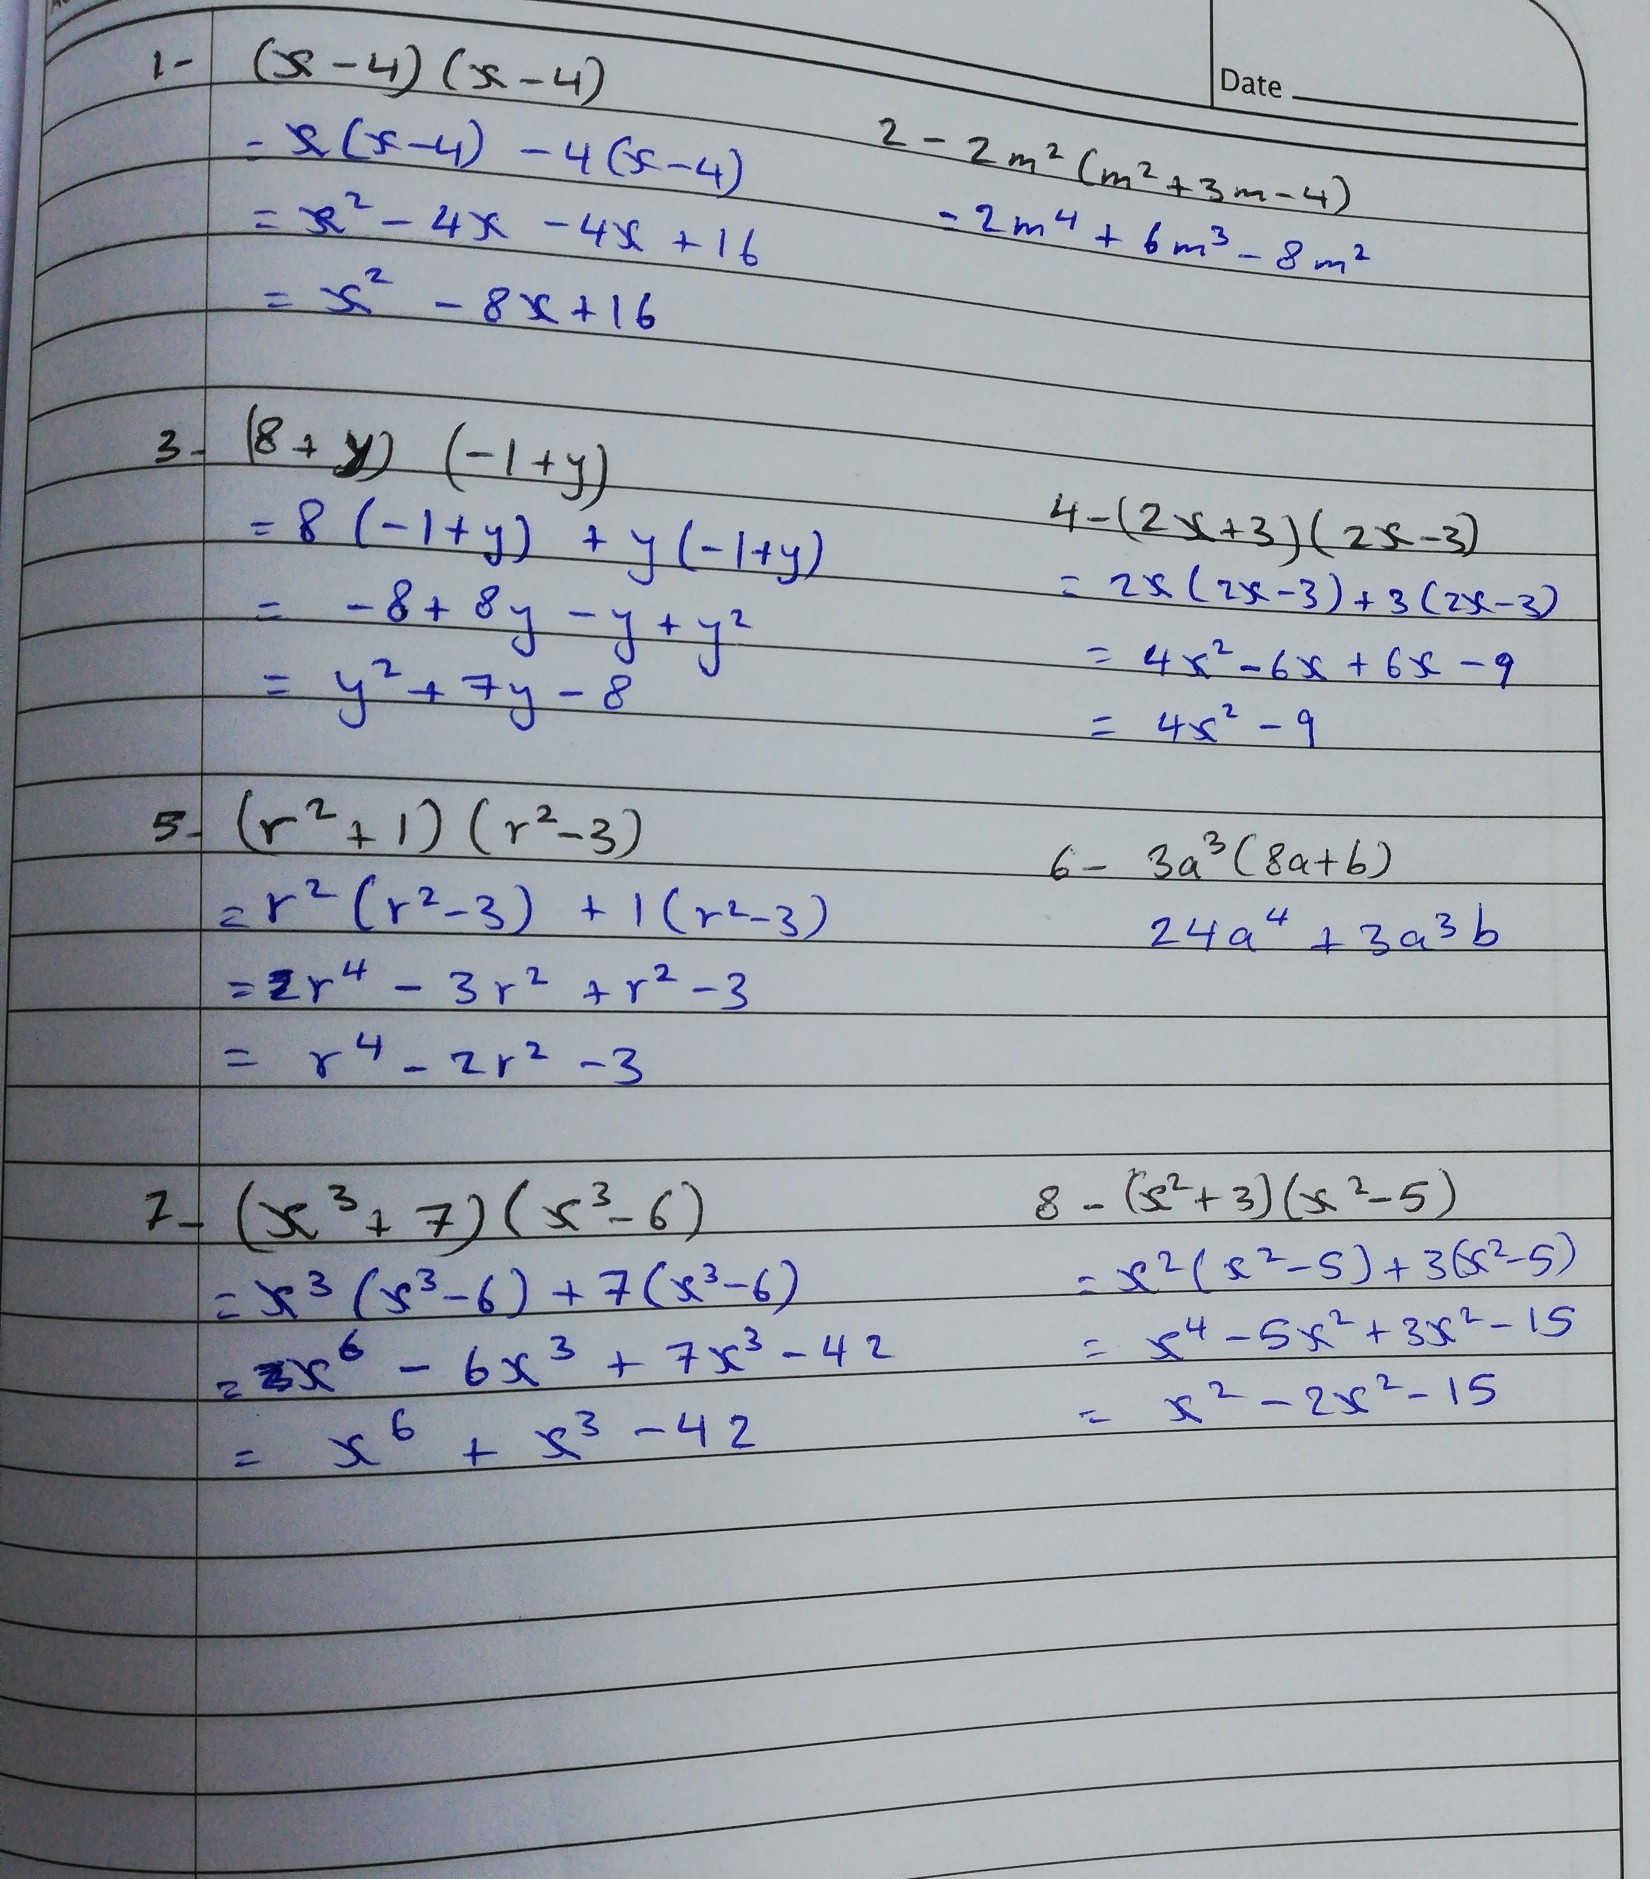 Date
1- (x-4)(x-4)
= x(x-4) -4(x-4)
= x² - 4x - 4x + 16
= x² - 8x + 16
2 - 2m²(m²+3m-4)
= 2m⁴ + 6m³ - 8m²
3- (8+y) (-1+y)
= 8(-1+y) + y(-1+y)
= -8 + 8y - y + y²
= y² + 7y - 8
4 - (2x+3)(2x-3)
= 2x(2x-3)+3(2x-3)
= 4x² - 6x + 6x - 9
= 4x² - 9
5- (r²+1)(r²-3)
= r²(r²-3) + 1(r²-3)
= r⁴ - 3r² + r² - 3
= r⁴ - 2r² - 3
6 - 3a³(8a+b)
24a⁴ + 3a³b
7- (x³+7)(x³-6)
= x³(x³-6)+7(x³-6)
= x⁶ - 6x³ + 7x³ - 42
= x⁶ + x³ - 42
8 - (x²+3)(x²-5)
= x²(x²-5)+3(x²-5)
= x⁴ - 5x² + 3x² - 15
= x² - 2x² - 15